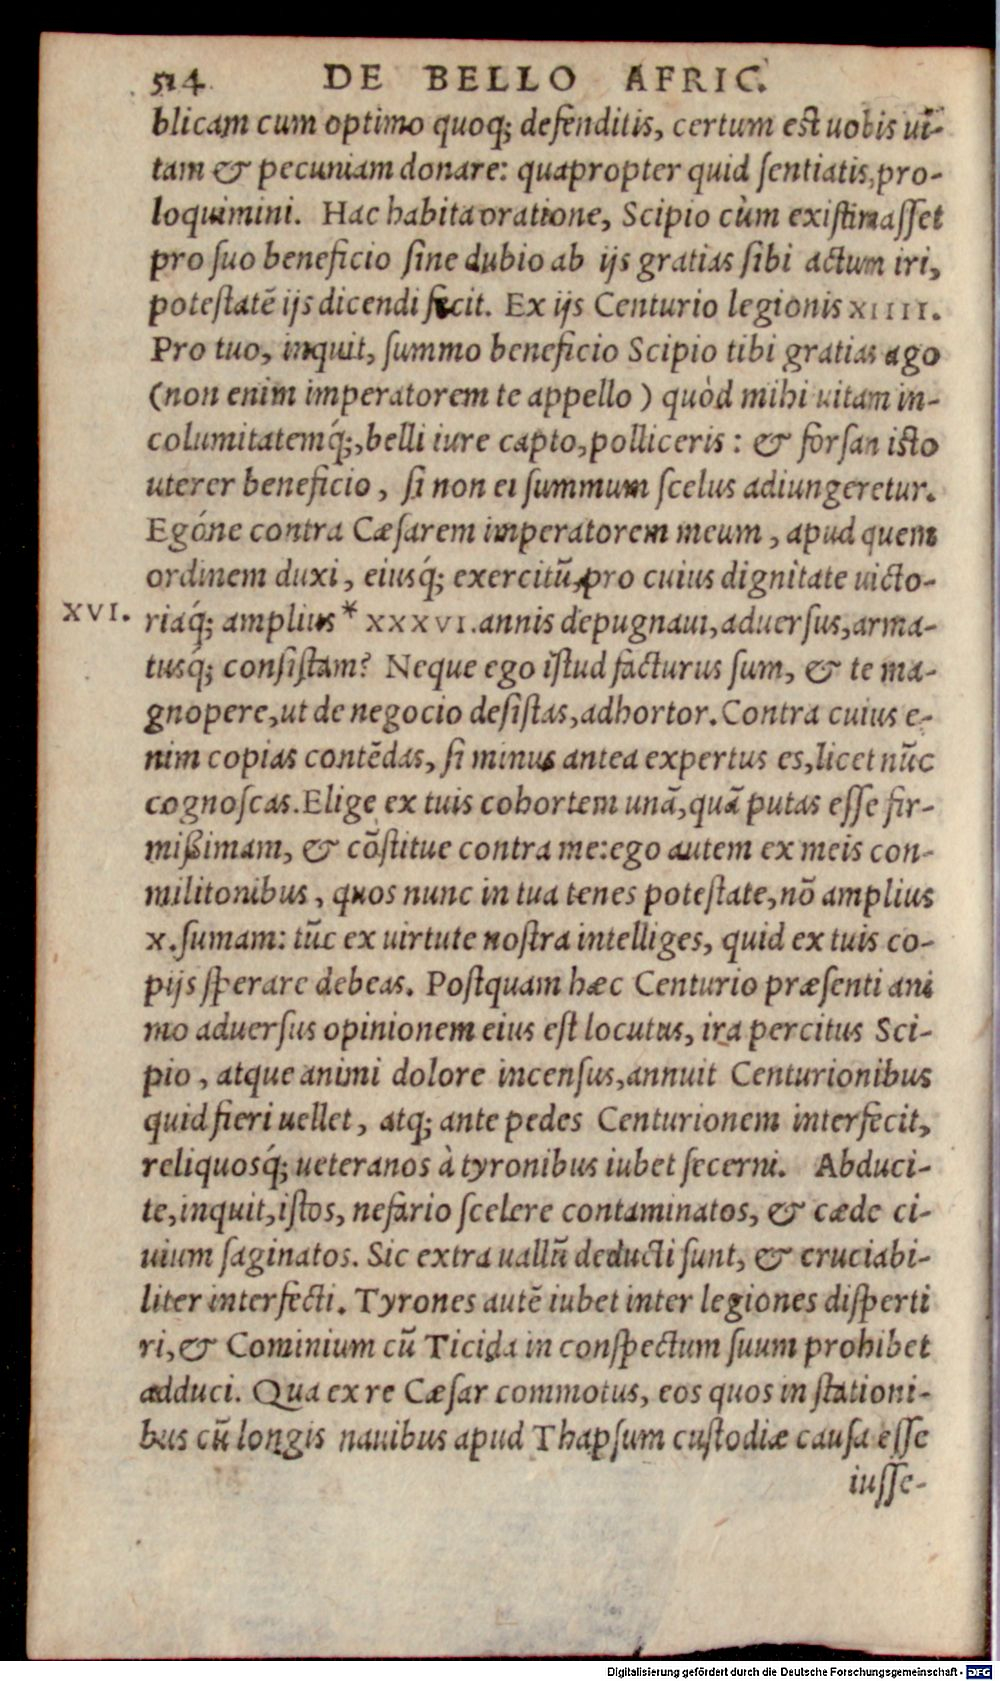 514 DE BELLO AFRIC.
blicam cum optimo quoq; defenditis, certum est uobis ui-
tam & pecuniam donare: quapropter quid ſentiatis, pro-
loquimini. Hac habita oratione, Scipio cùm existimaſſet
pro ſuo beneficio ſine dubio ab ijs gratias ſibi actum iri,
poteſtatē ijs dicendi fecit. Ex ijs Centurio legionis XIIII.
Pro tuo, inquit, ſummo beneficio Scipio tibi gratias ago
(non enim imperatorem te appello) quòd mihi uitam in-
columitatemq́;, belli iure capto, polliceris: & forſan isto
uterer beneficio, ſi non ei ſummum ſcelus adiungeretur.
Egóne contra Cæſarem imperatorem meum, apud quem
ordinem duxi, eiusq́; exercitū, pro cuius dignitate uicto-
XVI. riaq́; amplius * XXXVI. annis depugnaui, aduerſus, arma-
tusq́; conſiſtam? Neque ego iſtud facturus ſum, & te ma-
gnopere, ut de negocio deſiſtas, adhortor. Contra cuius e-
nim copias contēdas, ſi minus antea expertus es, licet nūc
cognoſcas. Elige ex tuis cohortem unā, quā putas eſſe fir-
mißimam, & cōſtitue contra me: ego autem ex meis con-
militonibus, quos nunc in tua tenes poteſtate, nō amplius
X. ſumam: tūc ex uirtute noſtra intelliges, quid ex tuis co-
pijs ſperare debeas. Poſtquam hæc Centurio præſenti ani
mo aduerſus opinionem eius eſt locutus, ira percitus Sci-
pio, atque animi dolore incenſus, annuit Centurionibus
quid fieri uellet, atq; ante pedes Centurionem interfecit,
reliquosq́; ueteranos à tyronibus iubet ſecerni. Abduci-
te, inquit, iſtos, nefario ſcelere contaminatos, & cæde ci-
uium ſaginatos. Sic extra uallū deducti ſunt, & cruciabi-
liter interfecti. Tyrones autē iubet inter legiones diſperti
ri, & Cominium cū Ticida in conſpectum ſuum prohibet
adduci. Qua ex re Cæſar commotus, eos quos in ſtationi-
bus cū longis nauibus apud Thapſum cuſtodiæ cauſa eſſe
iuſſe-
Digitalisierung gefördert durch die Deutsche Forschungsgemeinschaft - DFG